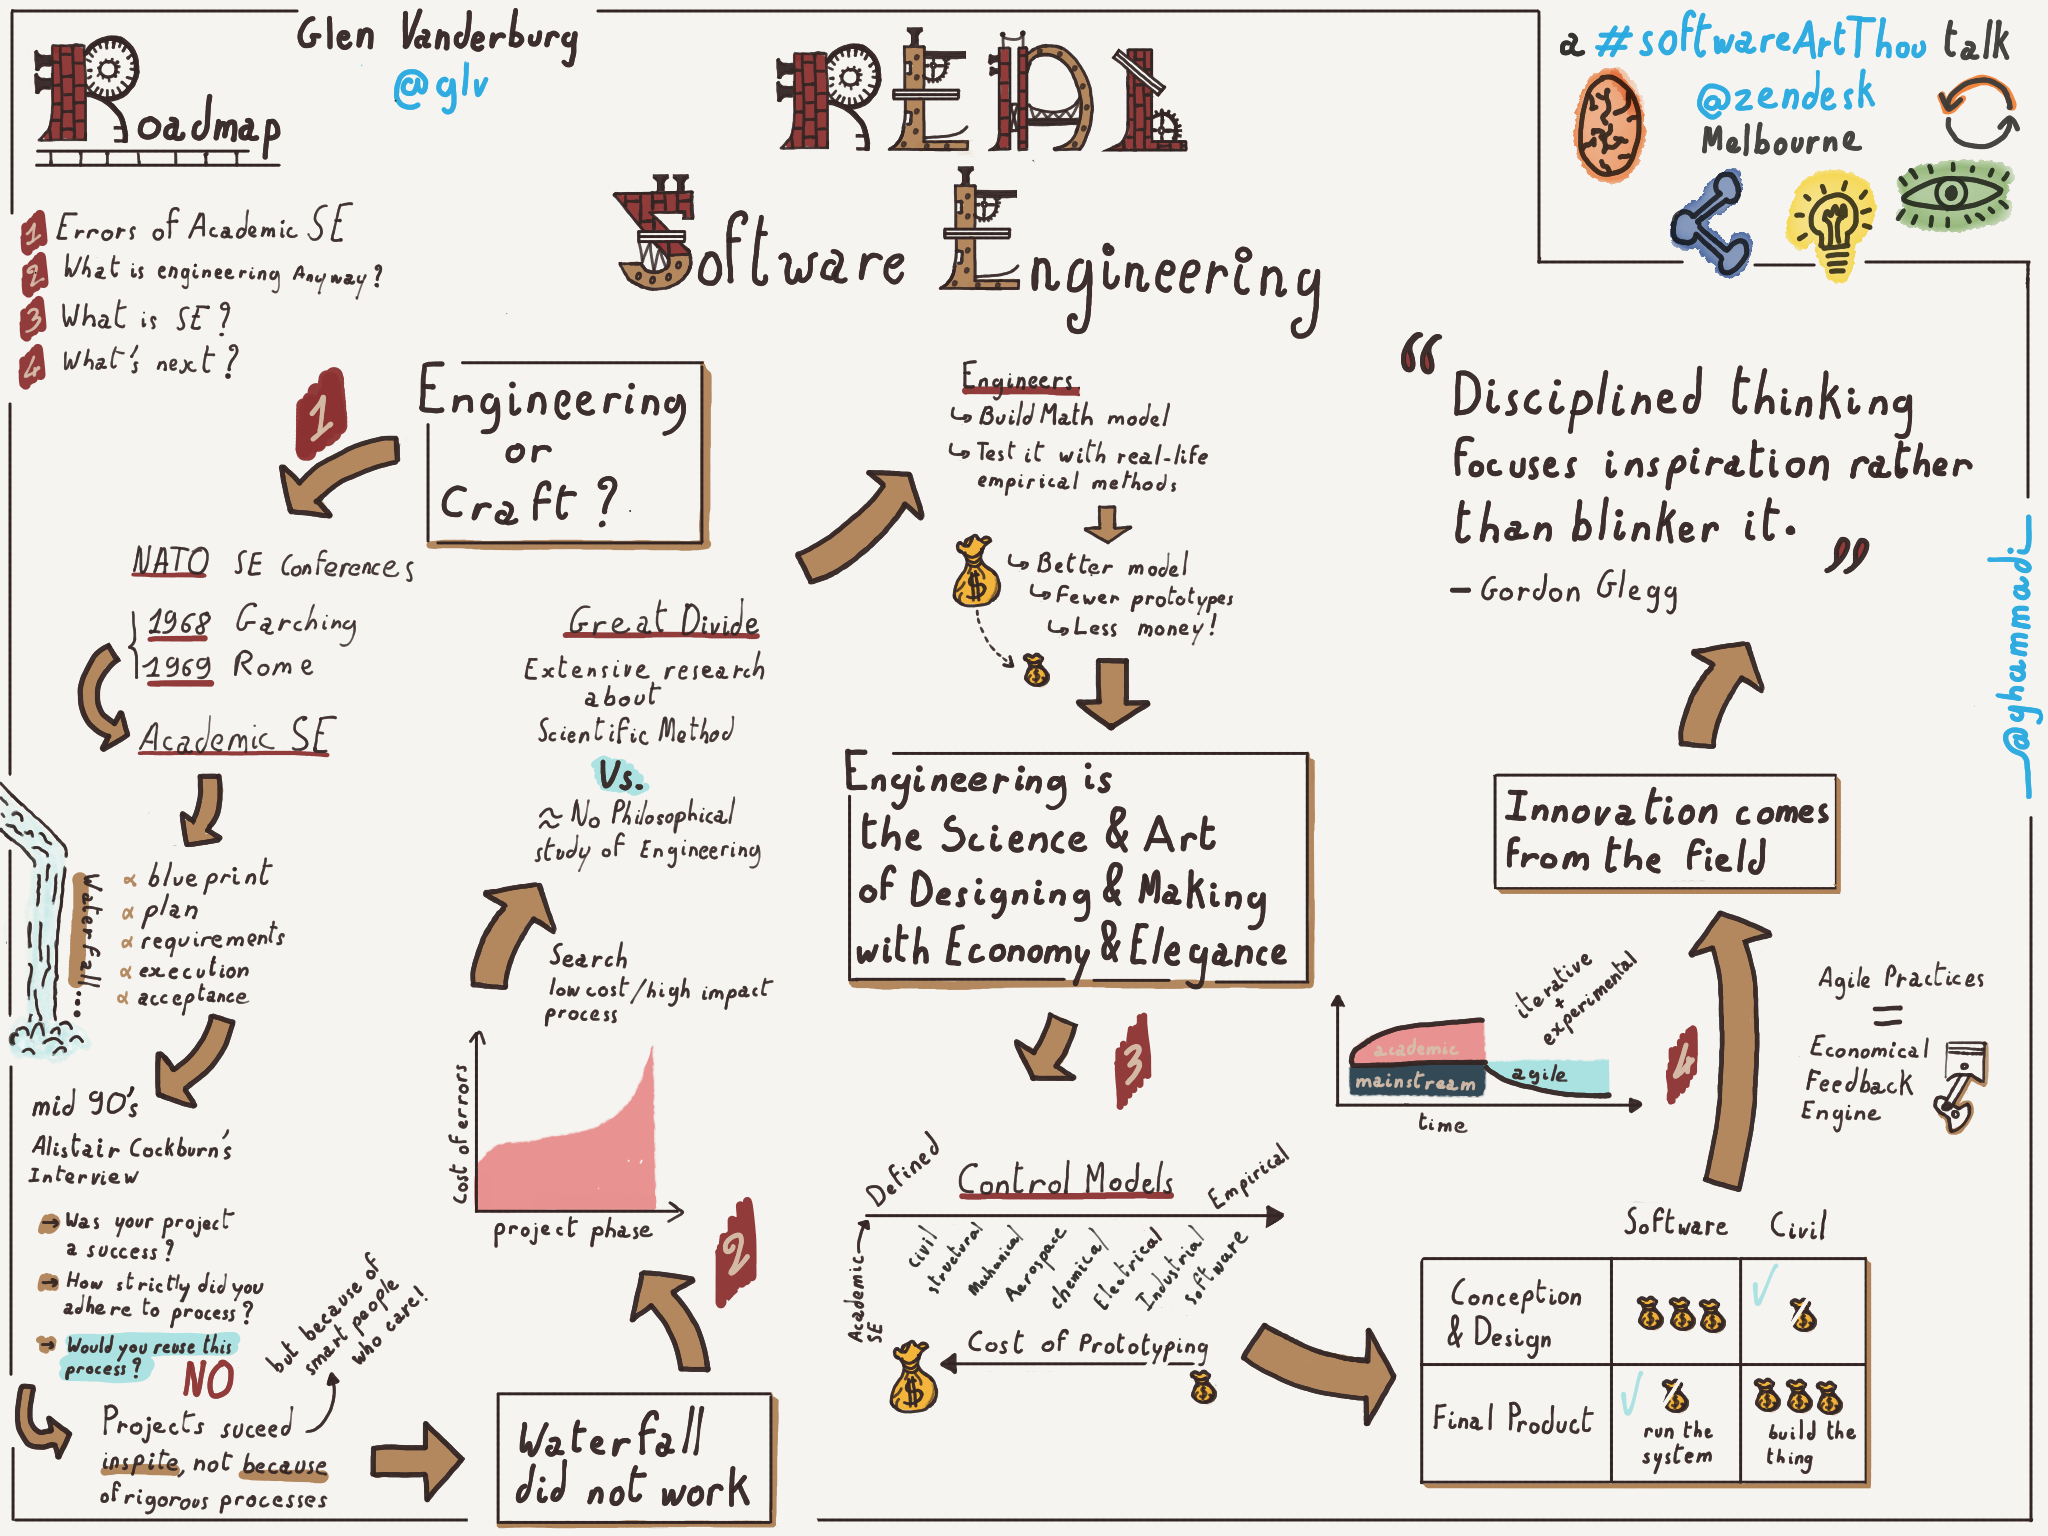 Glen Vanderburg
@glv
Roadmap
1 Errors of Academic SE
2 What is engineering Anyway?
3 What is SE?
4 What's next?
REAL
Software Engineering
a #softwareArtThou talk
@zendesk
Melbourne
Engineering
or
Craft?
1
NATO SE Conferences
1968 Garching
1969 Rome
Academic SE
Waterfall...
∝ blueprint
∝ plan
∝ requirements
∝ execution
∝ acceptance
mid 90's
Alistair Cockburn's
Interview
→ Was your project
a success?
→ How strictly did you
adhere to process?
→ Would you reuse this
process?
NO
Projects suceed
inspite, not because
of rigorous processes
but because of
smart people
who care!
Waterfall
did not work
2
Cost of errors
project phase
Search
low cost/high impact
process
Great Divide
Extensive research
about
Scientific Method
Vs.
≈ No Philosophical
study of Engineering
Engineers
↳ Build Math model
↳ Test it with real-life
empirical methods
↳ Better model
↳ Fewer prototypes
↳ Less money!
$
Engineering is
the Science & Art
of Designing & Making
with Economy & Elegance
3
Control Models
Defined
Empirical
Academic
SE
Civil
structural
Mechanical
Aerospace
chemical
Electrical
Industrial
software
Cost of Prototyping
$
Software Civil
Conception
& Design
Final Product
run the
system
build the
thing
4
academic
mainstream
agile
iterative
+
experimental
time
Agile Practices
=
Economical
Feedback
Engine
Innovation comes
from the field
“Disciplined thinking
focuses inspiration rather
than blinker it.”
– Gordon Glegg
@ghammadi